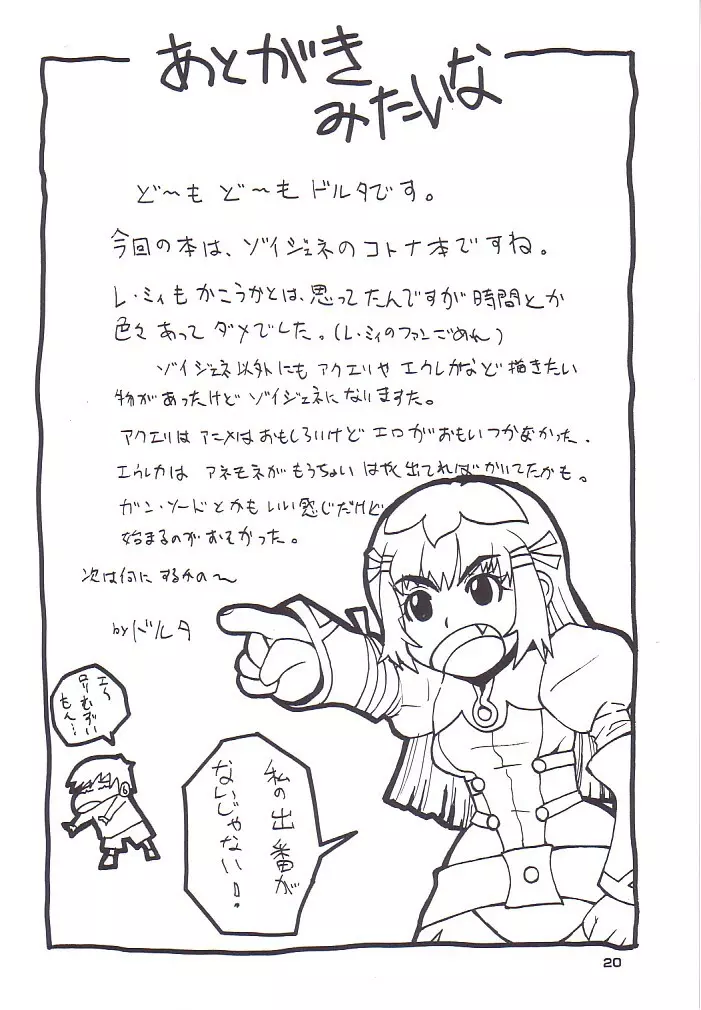 あとがき
みたいな
ど〜も ど〜も ドルタです。
今回の本は、ゾイジェネのコトナ本ですね。
レ・ミィもかこうかとは、思ってたんですが時間とか
色々あってダメでした。(レ・ミィのファンごめん)
ゾイジェネ以外にもアクエリやエウレカなど描きたい
物があったけどゾイジェネになりますた。
アクエリはアニメはおもしろいけどエロがおもいつかなかった.
エウレカはアネモネがもうちょいはやく出てればかいてたかも。
ガン・ソードとかもいい感じだけど
始まるのがおそかった。
次は何にするかの〜
by ドルタ
エ〜
ロリむずい
もん…
私の出番が
ないじゃない!
20